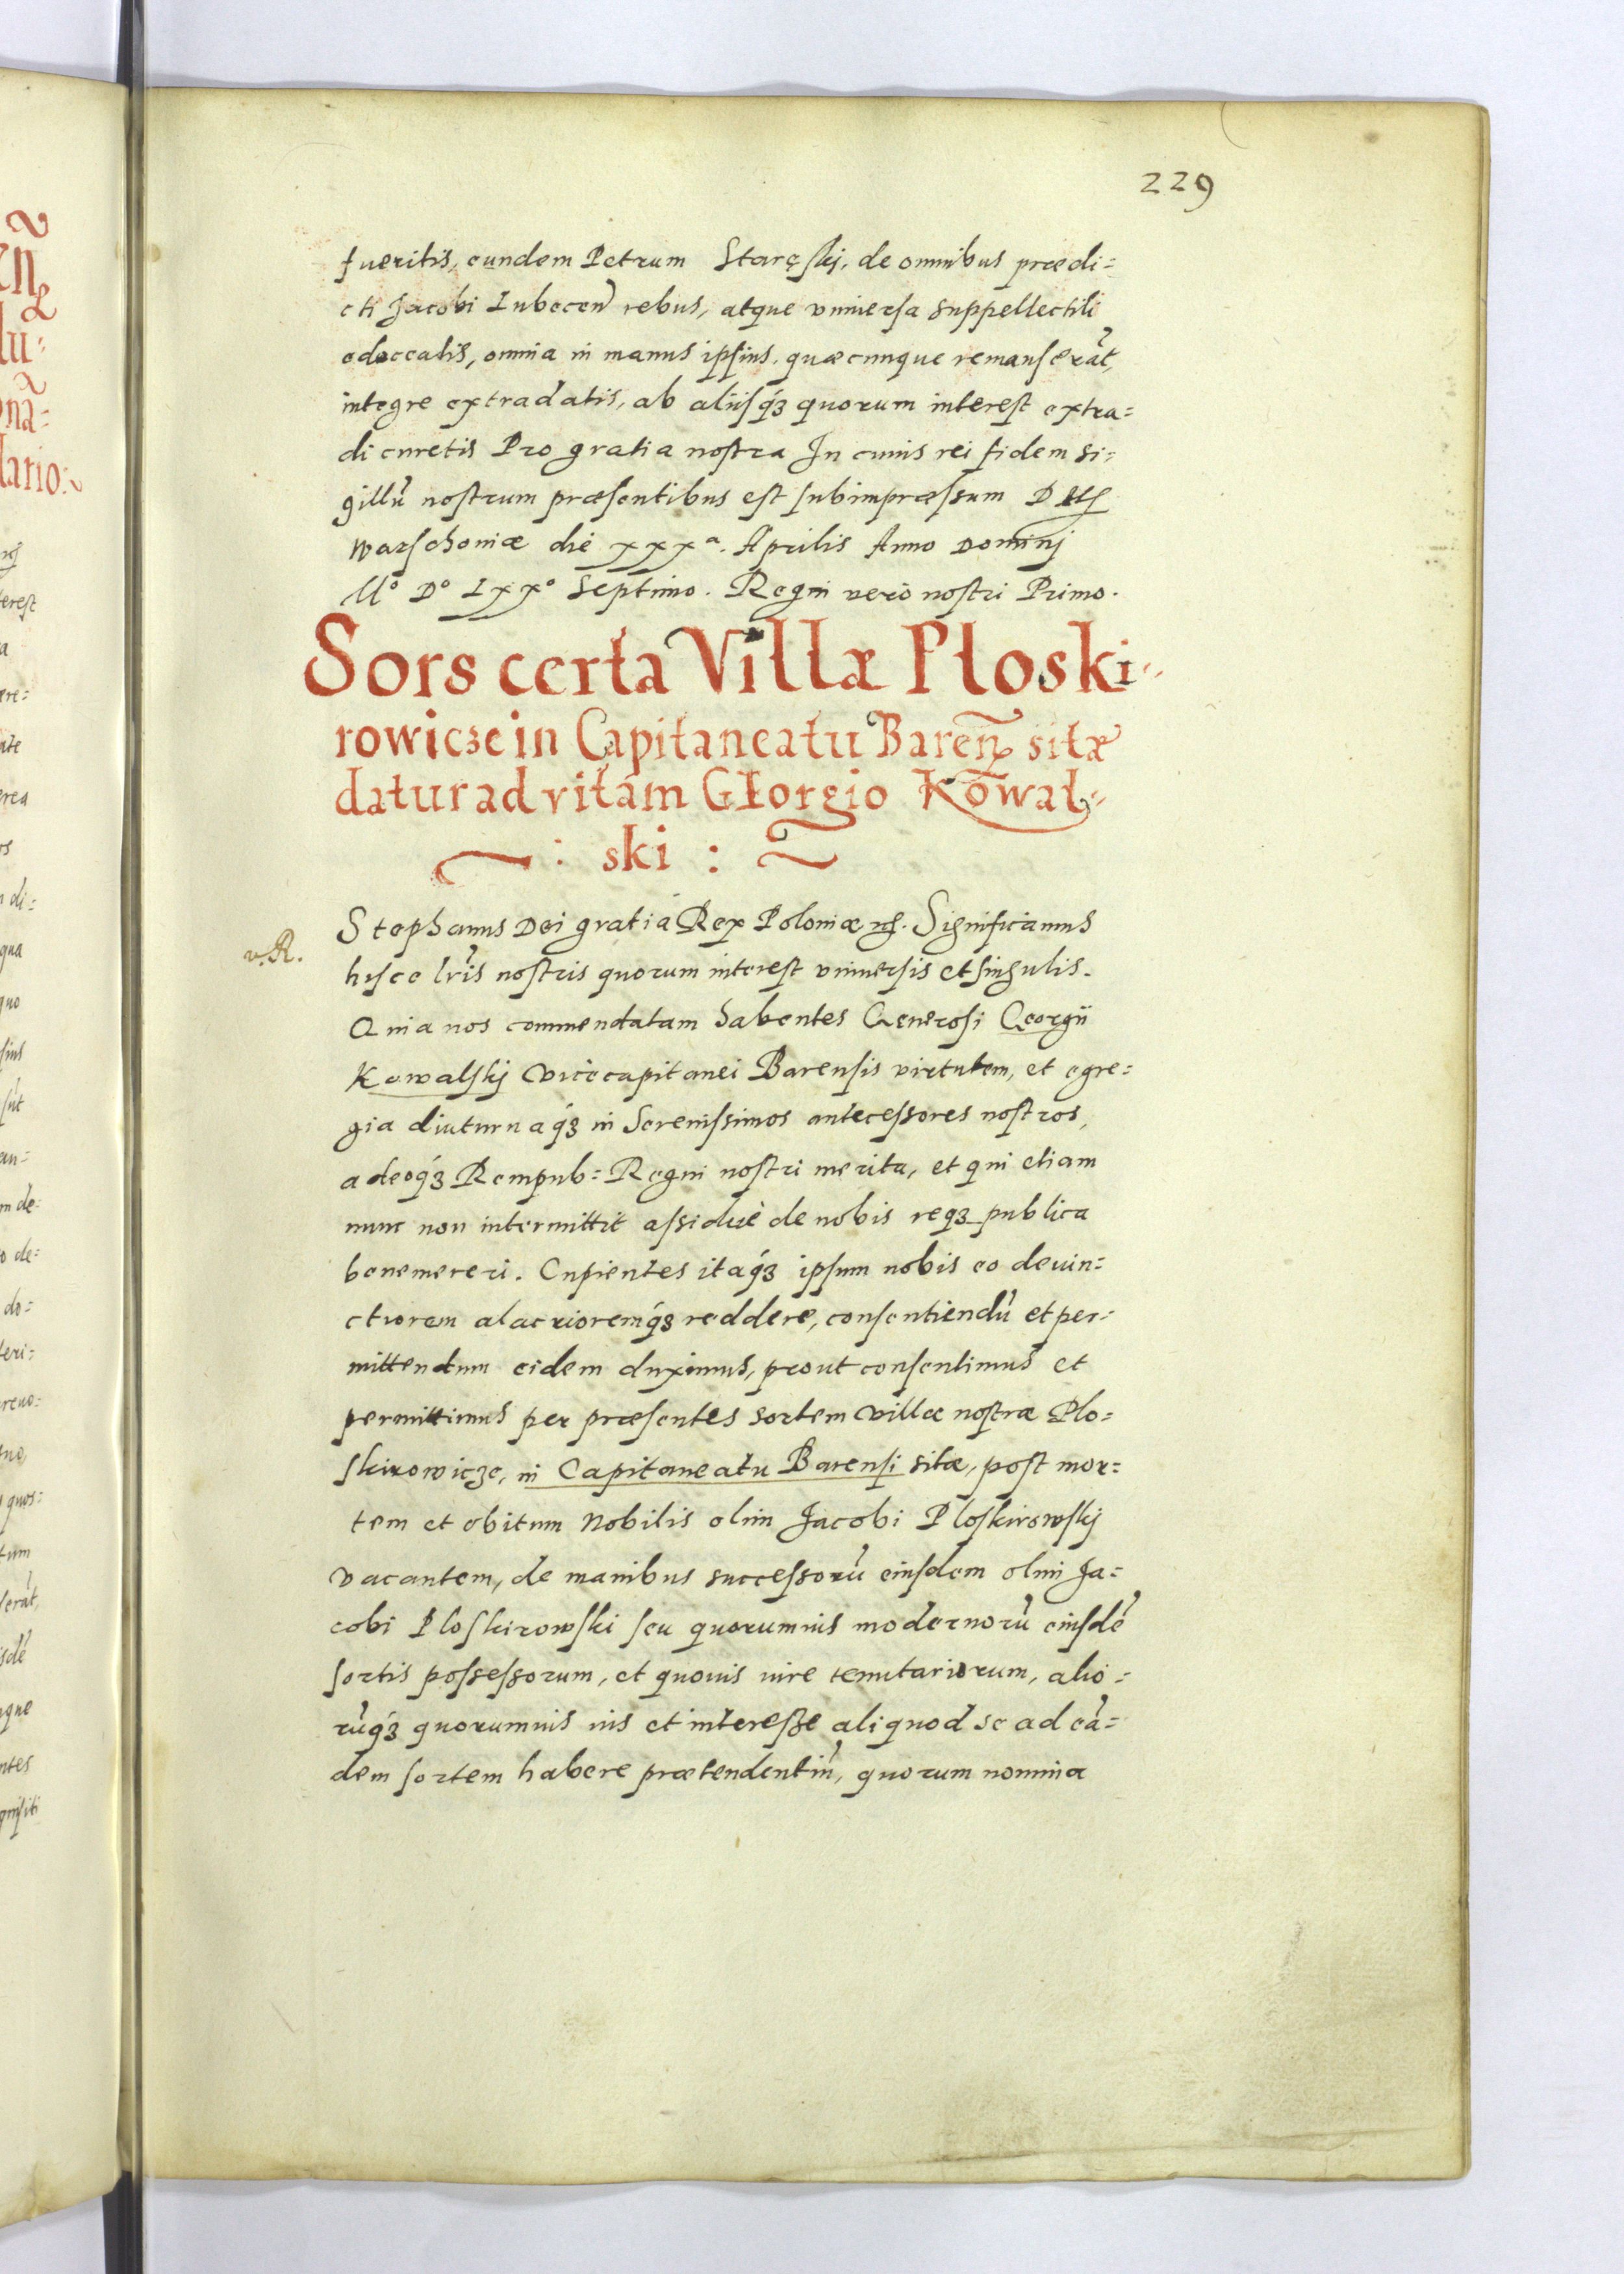 229
fueritis, eundem Petrum Staręskj, de omnibus prædi=
cti Jacobi Lubecen̄ rebus, atque vniuersa suppellectili
edoceatis, omnia in manus ipsius, quæcunque remanserāt,
integre extradatis, ab alijsq́ꝫ quorum interest extra=
di curetis Pro gratia nostra In cuius rei fidem si=
gillū nostrum præsentibus est subimpræssum
Warschouiæ die xxxᵃ. Aprilis Anno Dominj
Mᵒ Dᵒ Lxxᵒ Septimo. Regni verò nostri Primo.
Sors certa Villæ Płoski=
rowicze in Capitaneatu Baren̄ sitæ
datur ad vitam GEorgio Kowal=
: ski :
v. R.
Stephanus Dei gratia Rex Poloniæ etc. Significamus
hisce lrīs nostris quorum interest vniuersis et singulis.
Quia nos commendatam habentes Generosi Georgii
Kowalskj Vicecapitanei Barensis virtutem, et egre=
gia diuturnaq́ꝫ in Serenissimos antecessores nostros,
adeoq́ꝫ Rempub= Regni nostri merita, et qui etiam
nunc non intermittit assiduè de nobis reqꝫ publica
benemereri. Cupientes itaq́ꝫ ipsum nobis eo deuin=
ctiorem alacrioremq́ꝫ reddere, consentiendū et per=
mittendum eidem duximus, prout consentimus et
permittimus per præsentes sortem villæ nostræ Plo=
skirowicze, in Capitaneatu Barensi sitæ, post mor=
tem et obitum Nobilis olim Jacobi Ploskirowskj
vacantem, de manibus successorū eiusdem olim Ja=
cobi Ploskirowski seu quorumuis modernorū eiusdē
sortis possessorum, et quouis iure tenutariorum, alio=
rūq́ꝫ quorumuis ius et interesse aliquod se ad eā=
dem sortem habere prætendentiū, quorum nomina